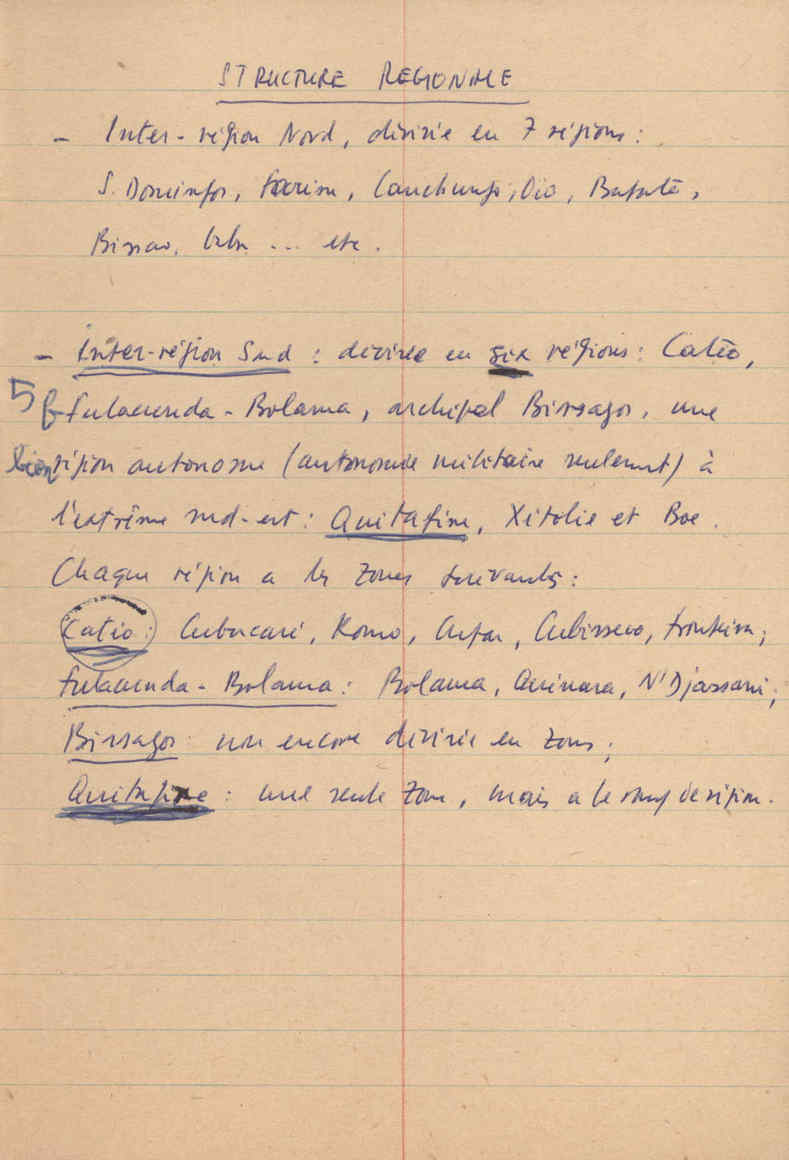 STRUCTURE REGIONALE
- Inter-région Nord, divisée en 7 régions :
S. Domingos, Farim, Canchungo, Oio, Bafatá,
Bissao, ... etc.
- Inter-région Sud : divisée en six régions : Catió,
5 Fulacunda - Bolama, archipel Bissagos, une
région autonome (autonomie militaire seulement) à
l'extrême sud-est : Quitafine, Xitolie et Boe.
Chaque région a les zones suivantes :
Catió : Cubucaré, Komo, Cufar, Cubisseco, Tombim ;
Fulacunda - Bolama : Bolama, Quinara, N'Djassani ;
Bissagos : non encore divisée en zones ;
Quitafine : une seule zone, mais a le rang de région.